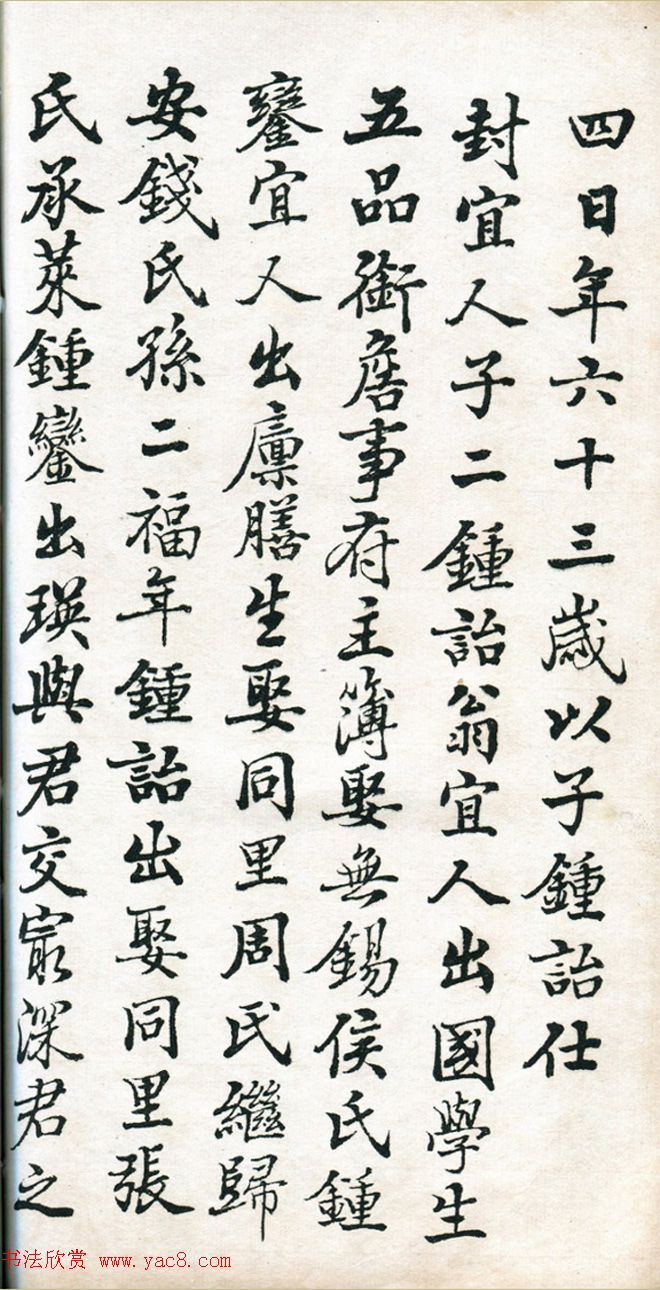 四日年六十三歲以子鍾詒仕
封宜人子二鍾詒翁宜人出國學生
五品銜詹事府主簿娶無錫侯氏鍾
鑾宜人出廩膳生娶同里周氏繼歸
安錢氏孫二福年鍾詒出娶同里張
氏承萊鍾鑾出瑛與君交㝡深君之
书法欣赏 www.yac8.com